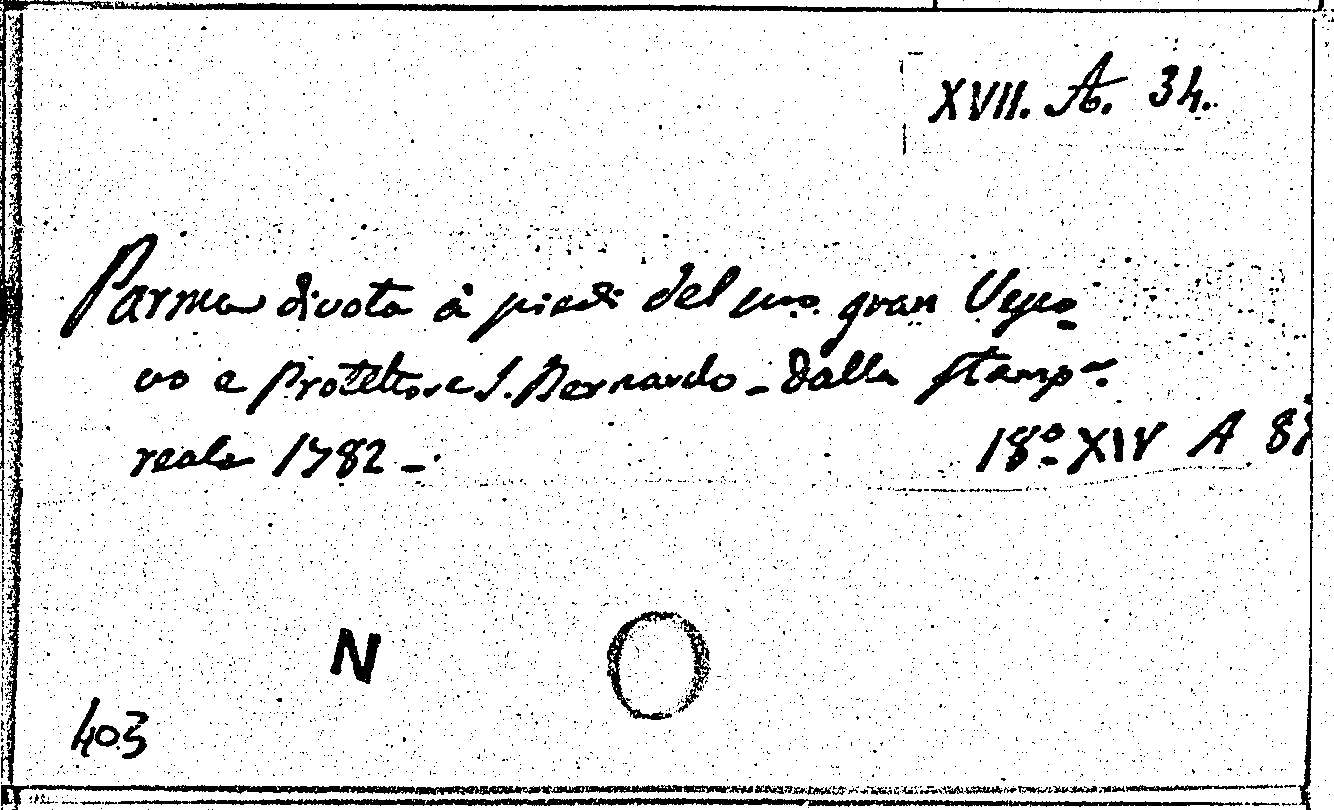 XVII. A. 34.
Parma divota à piedi del suo gran Vesco-
vo e Protettore S. Bernardo - dalla stamp.a
reale 1782 -.
18.o XIV A
N
403